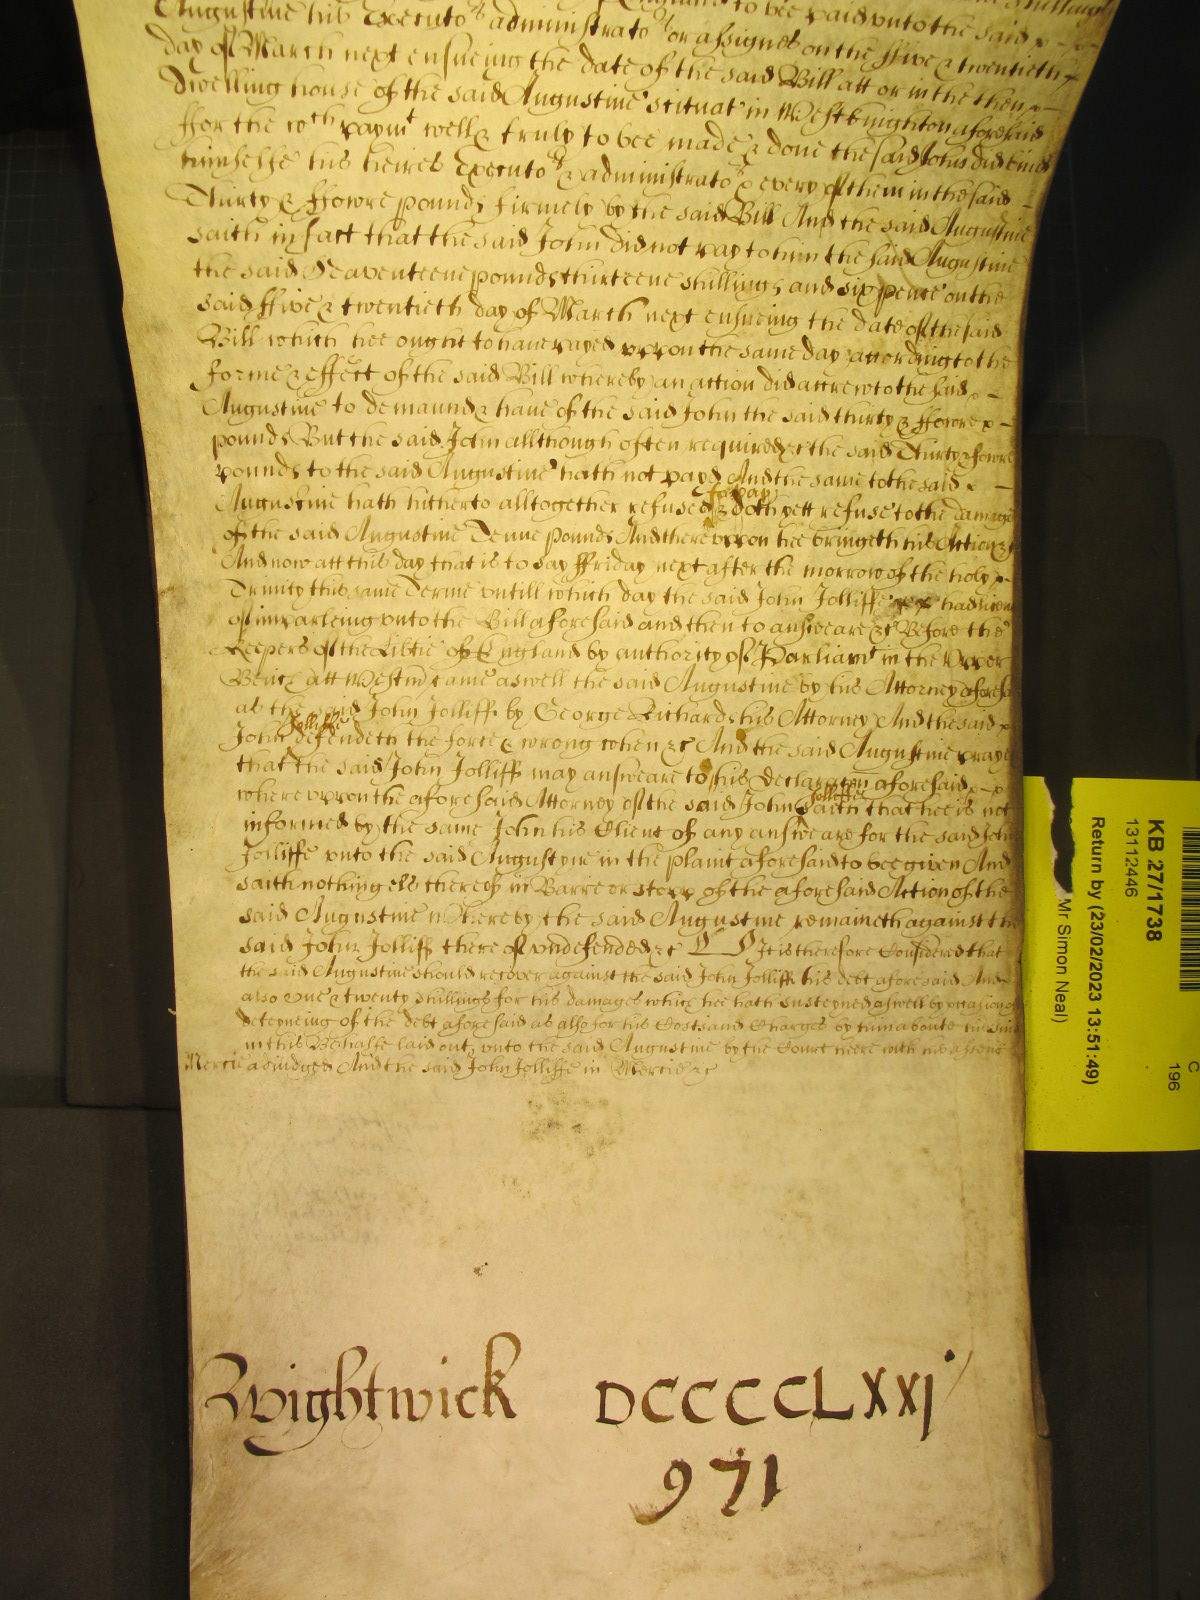 to bee paid unto the said
Augustine his Executors administrators or assignes on the ffive & twentieth
day of March next ensueing the date of the said Bill att or in the then
Dwelling house of the said Augustine scituat in West knighton aforesaid
ffor the wch paymt well & truly to bee made & done the said John did bind
himselfe his heires Executors & administrators & every of them in the said
Thirty & ffowre pounds firmely by the said Bill And the said Augustine
saith in fact that the said John did not pay to him the said Augustine
the said Seaventeene pounds thirteene shillings and six pence on the
said ffive & twentieth day of March next ensueing the date of the said
Bill which hee ought to have payed uppon the same day according to the
forme & effect of the said Bill whereby an action did accrew to the said
Augustine to demaund & have of the said John the said thirty & ffowre
pounds But the said John allthough often required &c the said Thirty & fowre
pounds to the said Augustine hath not payd And the same to the said
Augustine hath hitherto alltogether refused to pay & doth yett refuse to the damage
of the said Augustine Tenne pounds And thereuppon hee bringeth his Action &c
And now att this day that is to say ffriday next after the morrow of the holy
Trinity this same Terme untill which day the said John Jolliffe had
of imparleing unto the Bill aforesaid and then to answeare &c Before the
Keepers of the Libtie of England by authority of Parliamt in the Upper
Bench att Westm came aswell the said Augustine by his Attorney aforesaid
as the said John Jolliffe by George Richards his Attorney And the said
John Jolliffe defendeth the force & wrong when &c And the said Augustine prayeth
that the said John Jolliffe may answeare to his declaration aforesaid
whereuppon the aforesaid Attorney of the said John Jolliffe saith that hee is not
informed by the same John his Client of any answeare for the said John
Jolliffe unto the said Augustyne in the plaint aforesaid to bee given And
saith nothing els thereof in Barre or stopp of the aforesaid Action of the
said Augustine Whereby the said Augustine remaineth against the
said John Jolliffe thereof undefended &c It is therefore Considered that
the said Augustine should recover against the said John Jolliffe his debt aforesaid And
also One & twenty shillings for his damages which hee hath susteyned aswell by occasion of
deteyneing of the debt aforesaid as also for his Costs and Charges by him aboute his suit
in this Behalfe laid out unto the said Augustine by the Court heere with his assent
Mercie adiudged And the said John Jolliffe in Mercie &c
Wightwick DCCCCCLXXI
971
KB 27/1738
13112446
Return by (23/02/2023 13:51:49)
Mr Simon Neal)
C
196